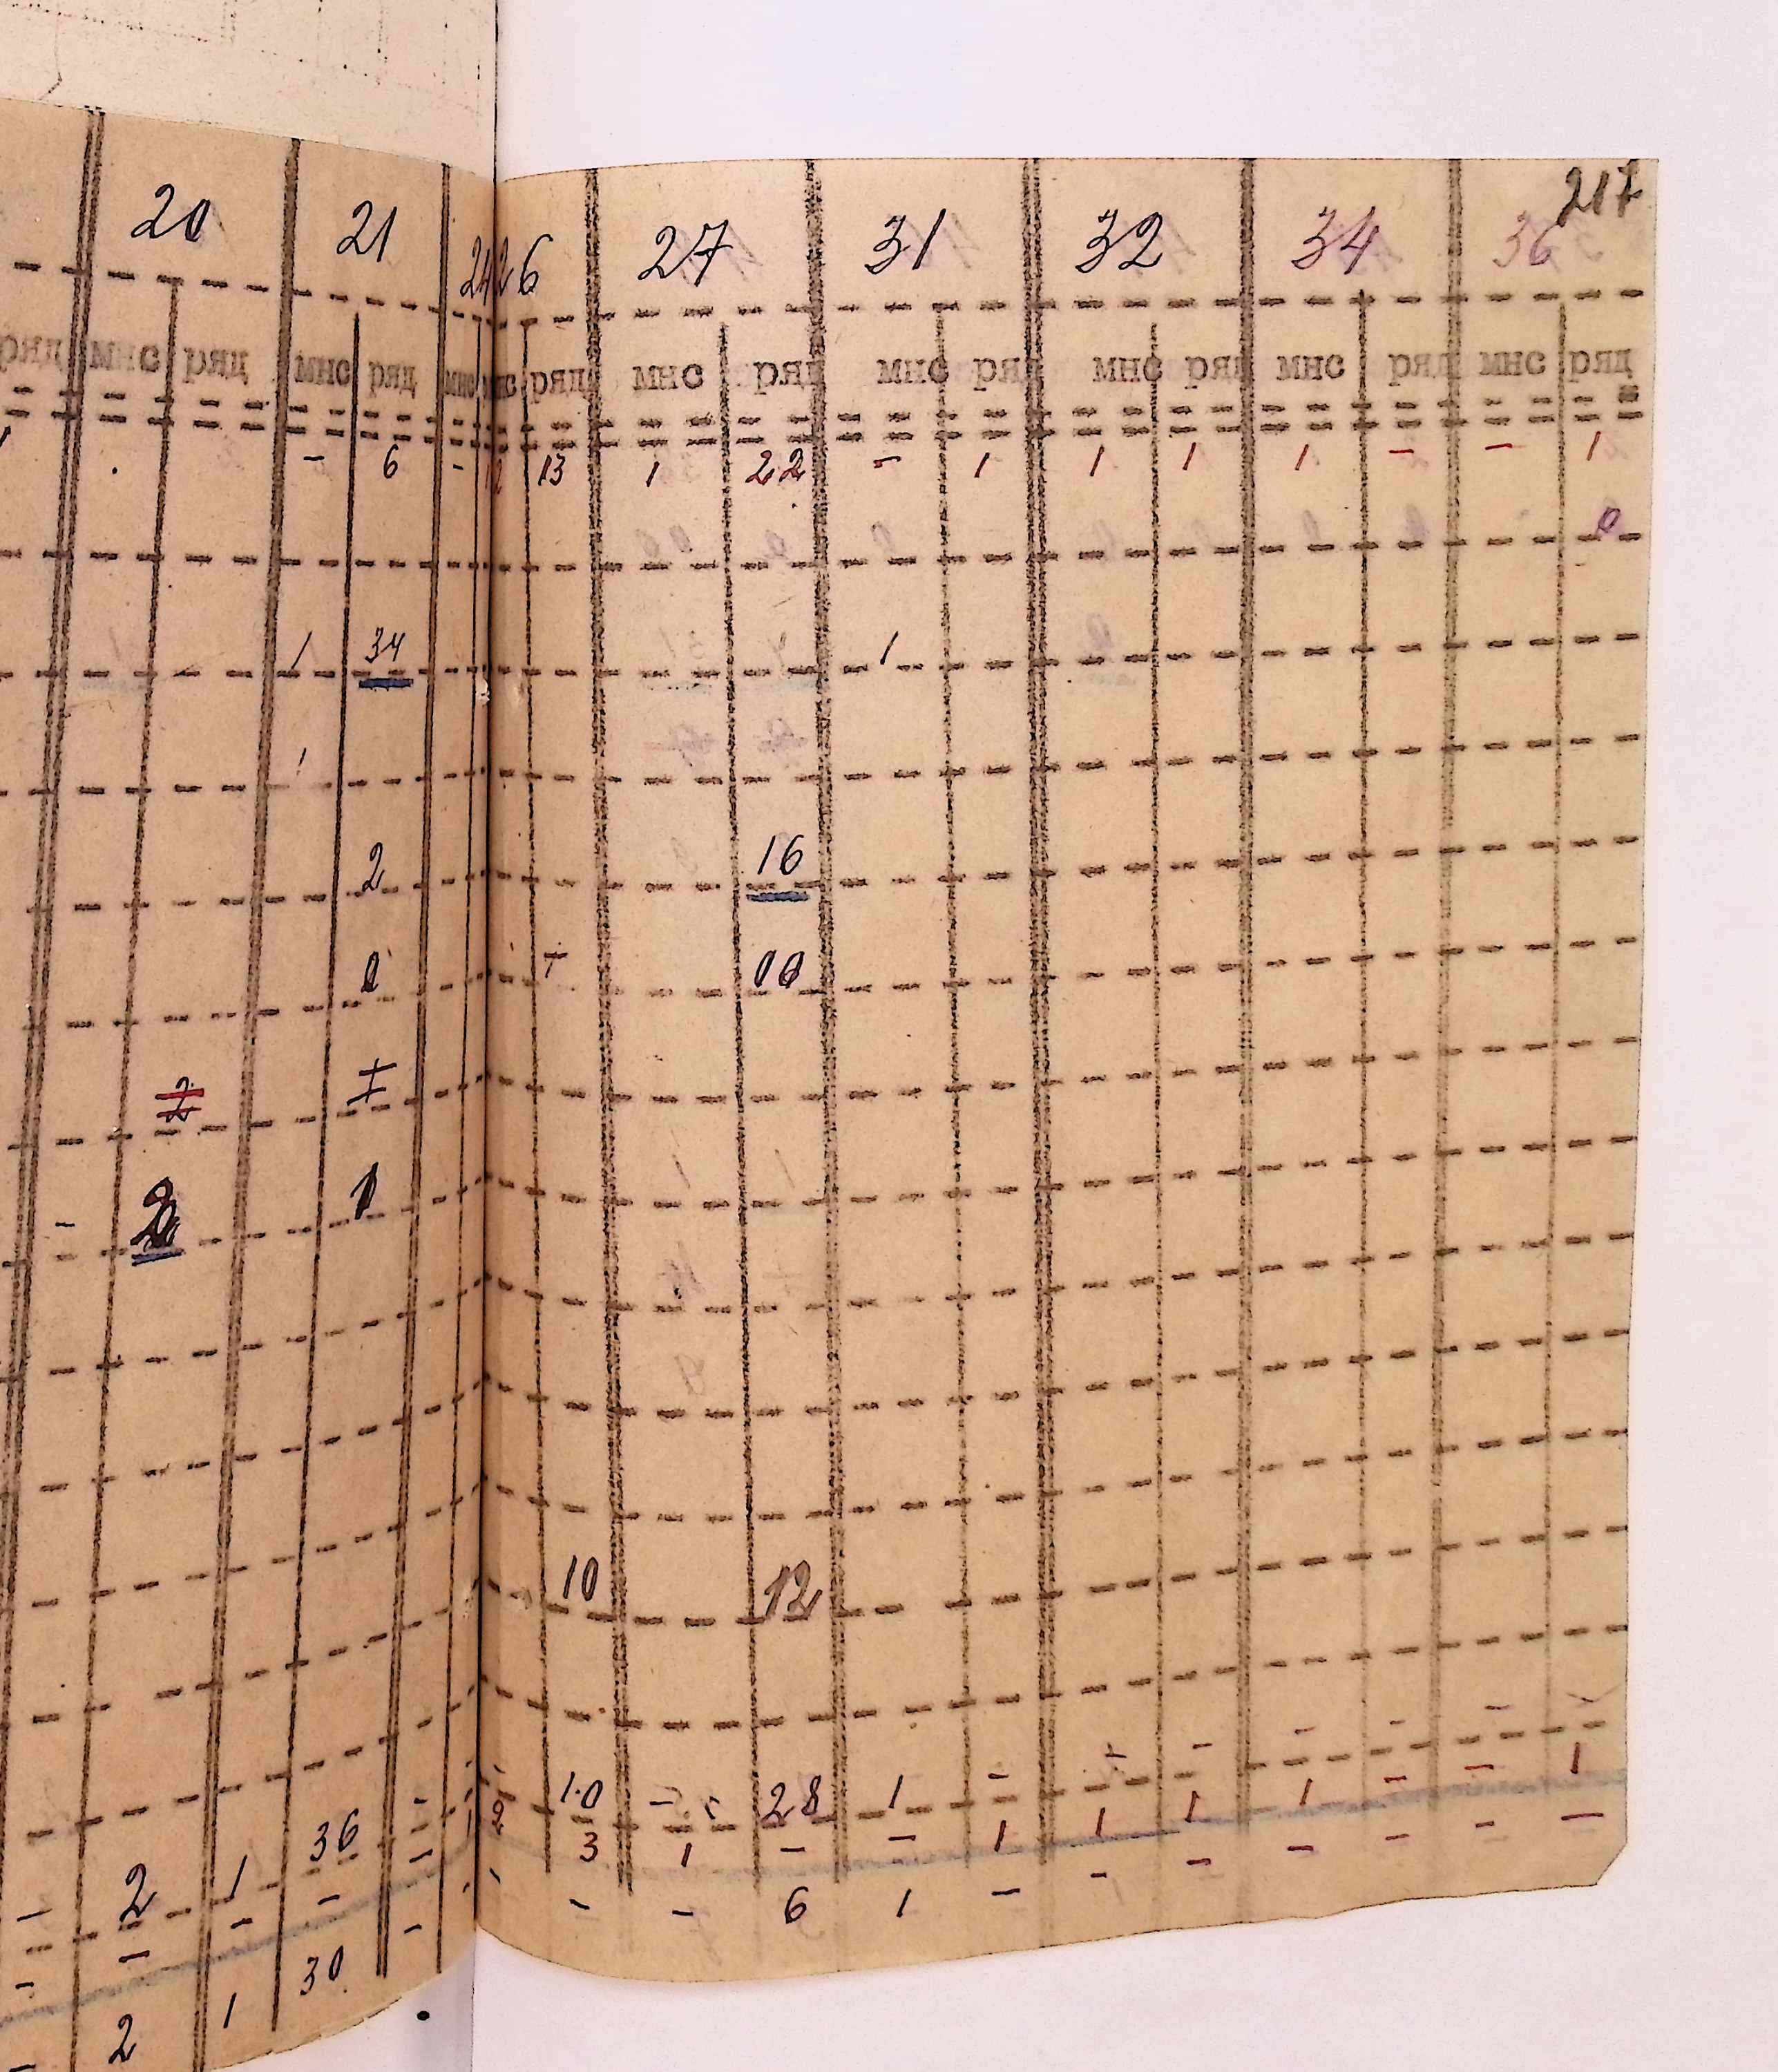 217
20 21 24 26 27 31 32 34 36
ряд мнс ряд мнс ряд мнс мнс ряд мнс ряд мнс ряд мнс ряд мнс ряд мнс ряд
- 6 - 12 13 1 22 - 1 1 1 1 - - 1
0
1 34 1
1
2 16
0 00
2
- 2 1
10 12
- - - -
- - 10 - 28 1 - -
2 1 36 - 1 2 3 1 - - 1 1 1 1 - - 1
- - - - - - - - - 6 1 - - - - - - -
- 2 1 30 -